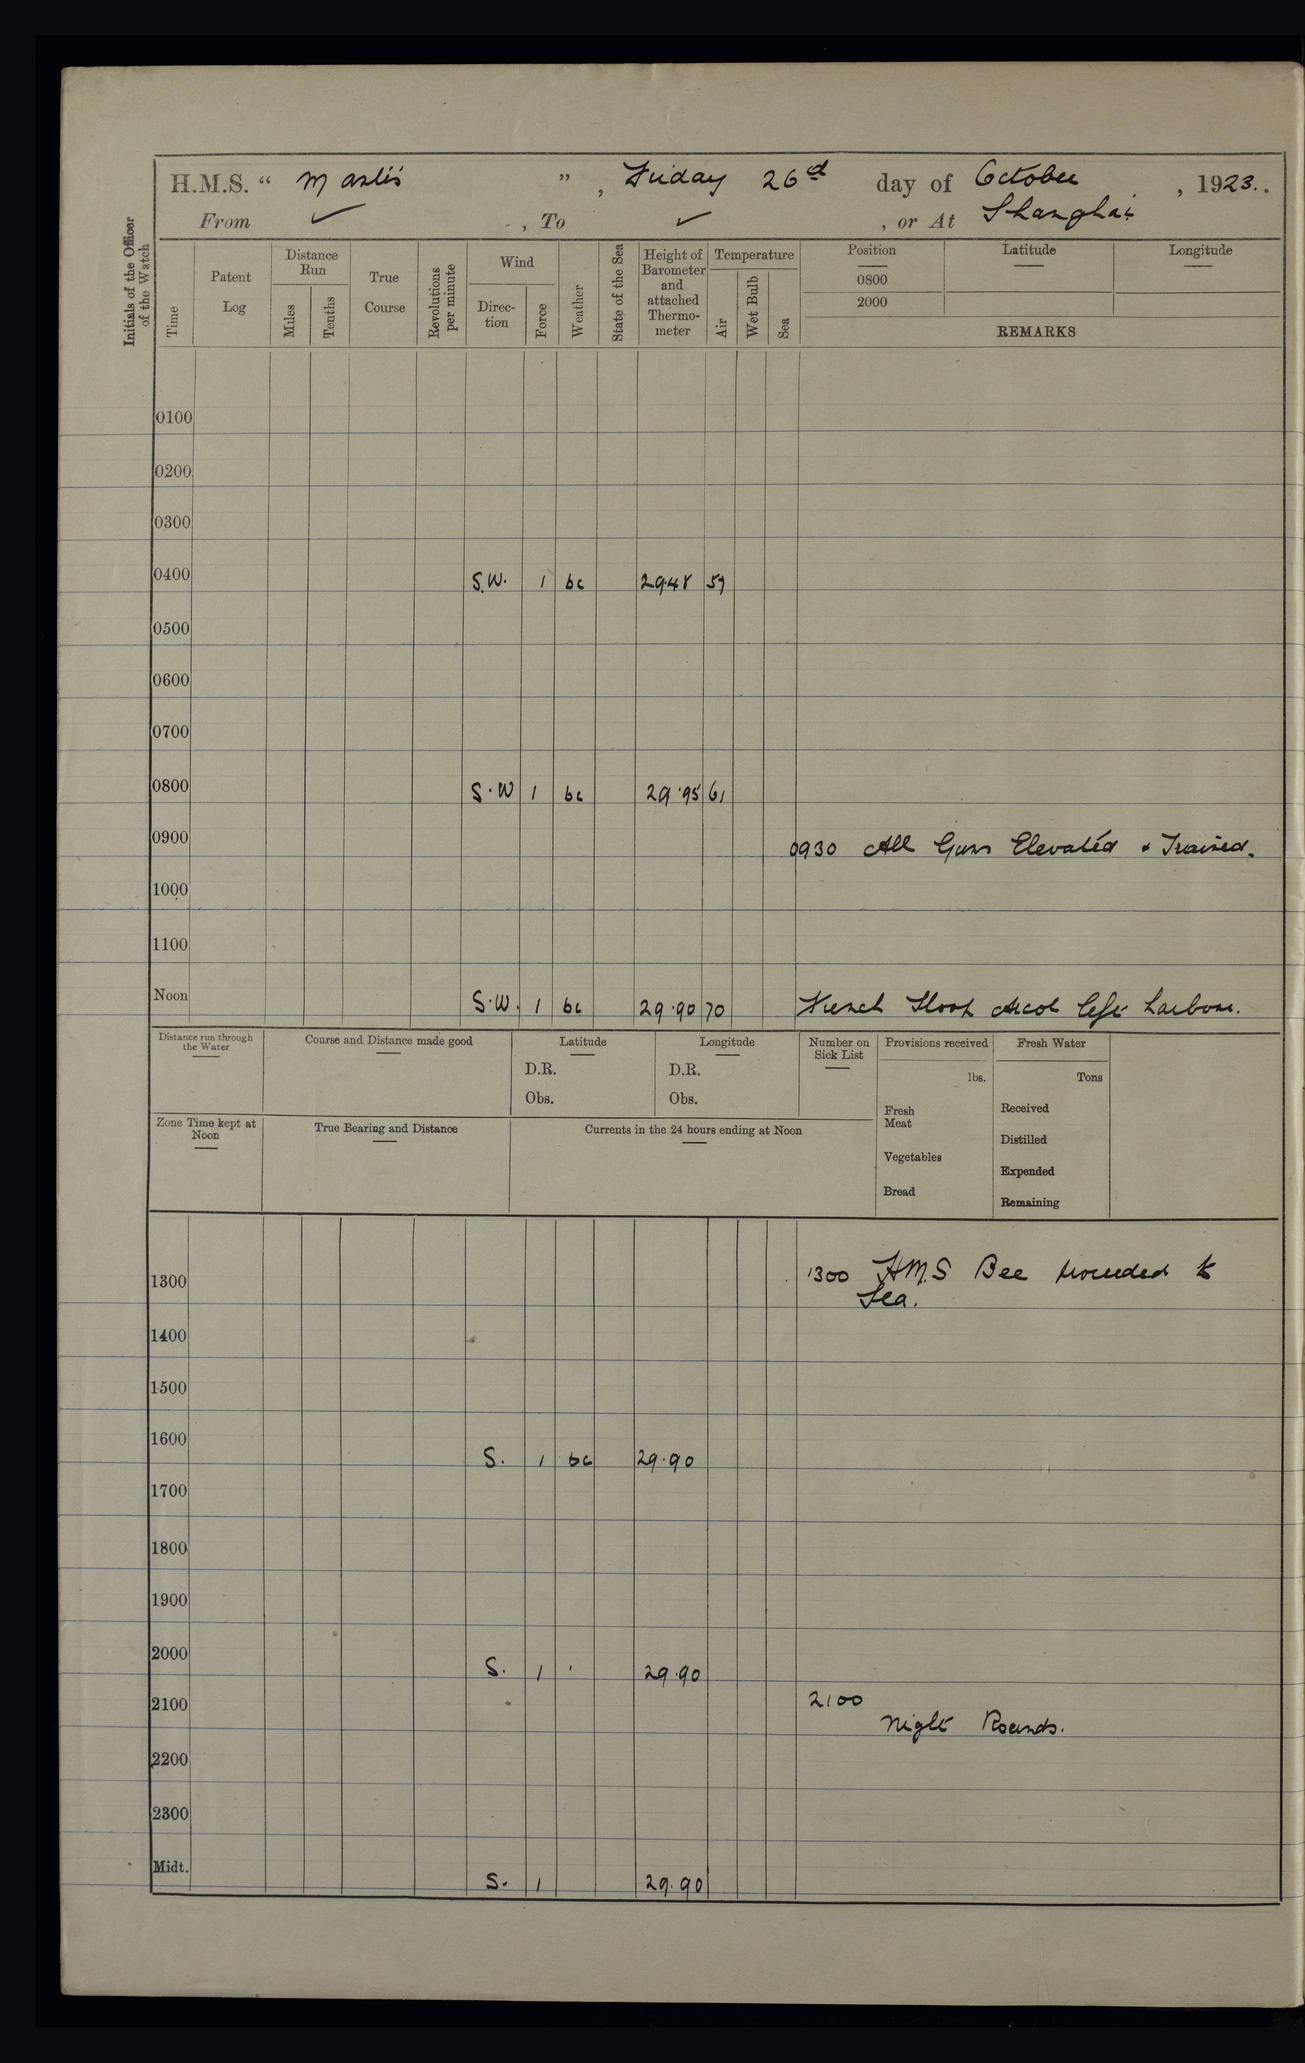 H.M.S. " Mantis ", Friday 26th day of October, 1923.
From ✓, To ✓, or At Shanghai
Initials of the Officer of the Watch
Time
Patent Log
Distance Run
Miles
Tenths
True Course
Revolutions per minute
Wind
Direc-tion
Force
Weather
State of the Sea
Height of Barometer and attached Thermo-meter
Temperature
Air
Wet Bulb
Sea
Position
Latitude
Longitude
0800
2000
REMARKS
0100
0200
0300
0400 S.W. 1 bc 29.48 59
0500
0600
0700
0800 S.W 1 bc 29.95 61
0900 0930 All Guns Elevated & Trained.
1000
1100
Noon S.W. 1 bc 29.90 70 French Sloop left harbour.
Distance run through the Water
Course and Distance made good
Latitude
D.R.
Obs.
Longitude
D.R.
Obs.
Number on Sick List
Provisions received
lbs.
Fresh Meat
Vegetables
Bread
Fresh Water
Tons
Received
Distilled
Expended
Remaining
Zone Time kept at Noon
True Bearing and Distance
Currents in the 24 hours ending at Noon
1300 1300 H.M.S Bee proceeded to
Sea.
1400
1500
1600 S. 1 bc 29.90
1700
1800
1900
2000 S. 1 ' 29.90
2100 2100
Night Rounds.
2200
2300
Midt. S. 1 29.90